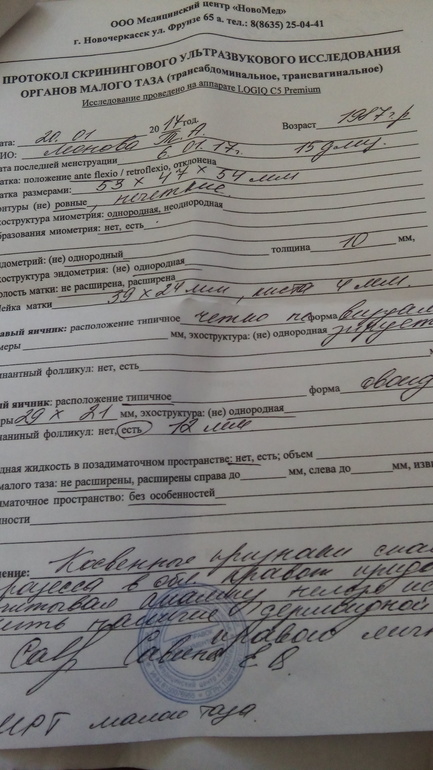 ООО Медицинский центр «НовоМед»
г. Новочеркасск ул. Фрунзе 65 а. тел.: 8(8635) 25-04-41
ПРОТОКОЛ СКРИНИНГОВОГО УЛЬТРАЗВУКОВОГО ИССЛЕДОВАНИЯ
ОРГАНОВ МАЛОГО ТАЗА (трансабдоминальное, трансвагинальное)
Исследование проведено на аппарате LOGIQ C5 Premium
ата: 20.01 2017 год. Возраст 1987 г/р
ИО:
ата последней менструации 6.01.17г. 15 д.м.ц.
атка: положение ante flexio / retroflexio, отклонена
атка размерами: 53 х 47 х 54 мм
онтуры (не) ровные, нечеткие
хоструктура миометрия: однородная, неоднородная
бразования миометрия: нет, есть
ндометрий: (не) однородный толщина 10 мм,
хоструктура эндометрия: (не) однородная
олость матки: не расширена, расширена
ейка матки 39 х 24 мм, киста 4 мм.
авый яичник: расположение типичное четко не форма визуали
меры мм, эхоструктура: (не) однородная зирует
инантный фолликул: нет, есть
ый яичник: расположение типичное форма овоид
ры 29 х 21 мм, эхоструктура: (не) однородная
нанинный фолликул: нет, есть 12 мм
дная жидкость в позадиматочном пространстве: нет, есть; объем
малого таза: не расширены, расширены справа до мм, слева до мм, изви
иматочное пространство: без особенностей
нности
чение: Косвенные признаки спа
процесса в обл. правого прида
читывая
ить наличие дермоидной
правого яичн
Савина Е В
МРТ малого таза.